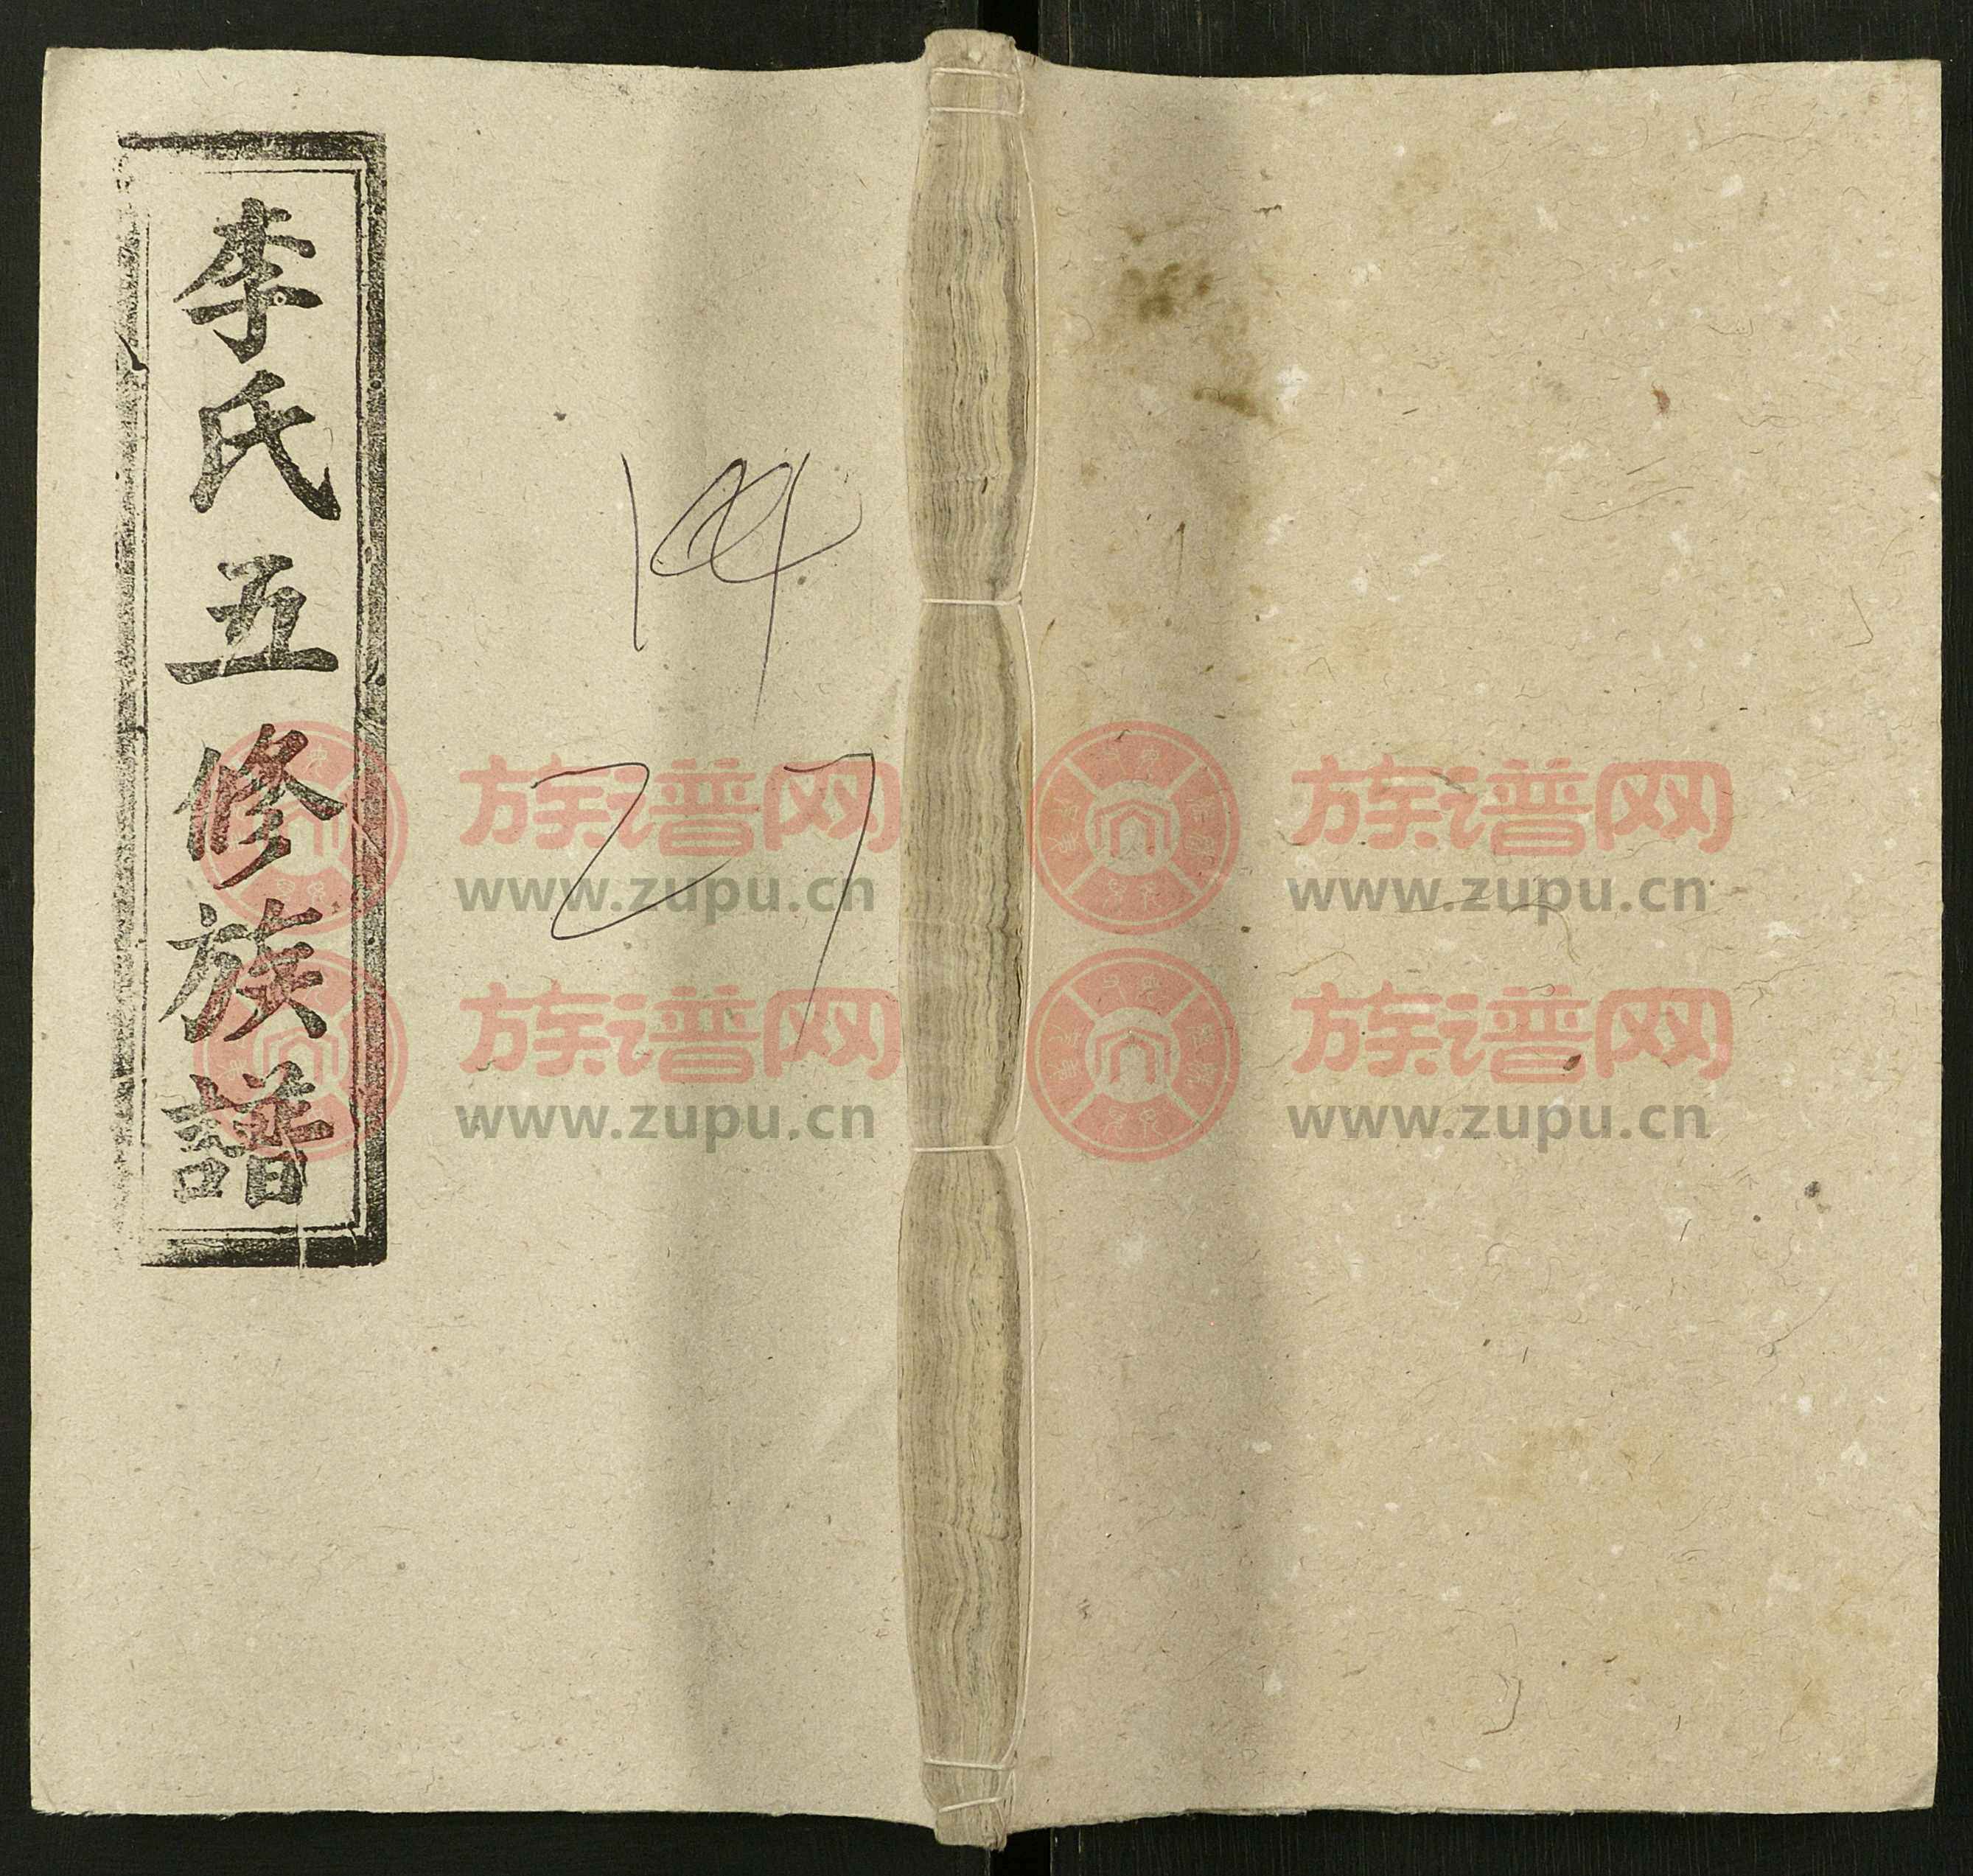 李氏五修族譜
27
族谱网 族谱网
www.zupu.cn www.zupu.cn
族谱网 族谱网
www.zupu.cn www.zupu.cn